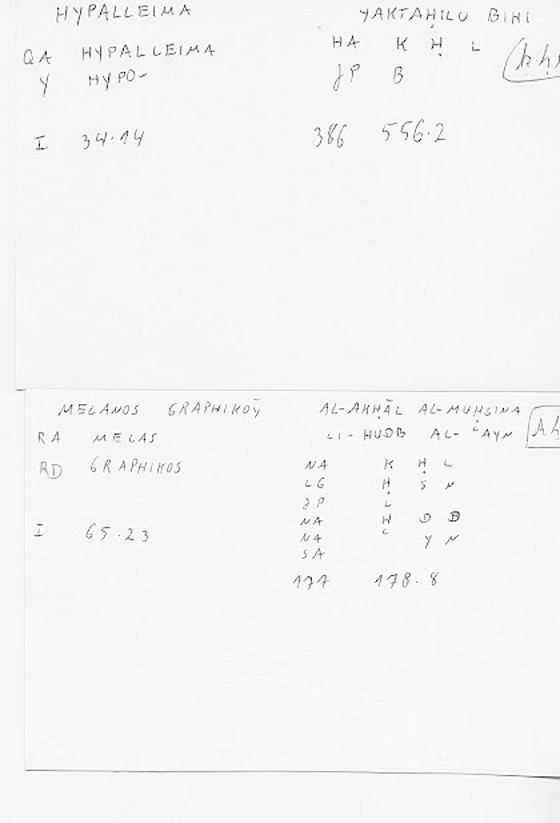 HYPALLEIMA YAKTAḤILU BIHI
QA HYPALLEIMA HA K Ḥ L
Y HYPO- JP B
I 34.14 386 556.2
MELANOS GRAPHIKOỸ AL-AKḤĀL AL-MUḤSINA
RA MELAS LI-HUDB AL-ʿAYN
RD GRAPHIKOS NA K Ḥ L
LG Ḥ S N
JP L
NA H D B
I 65.23 NA ʿ Y N
SA
177 178.8